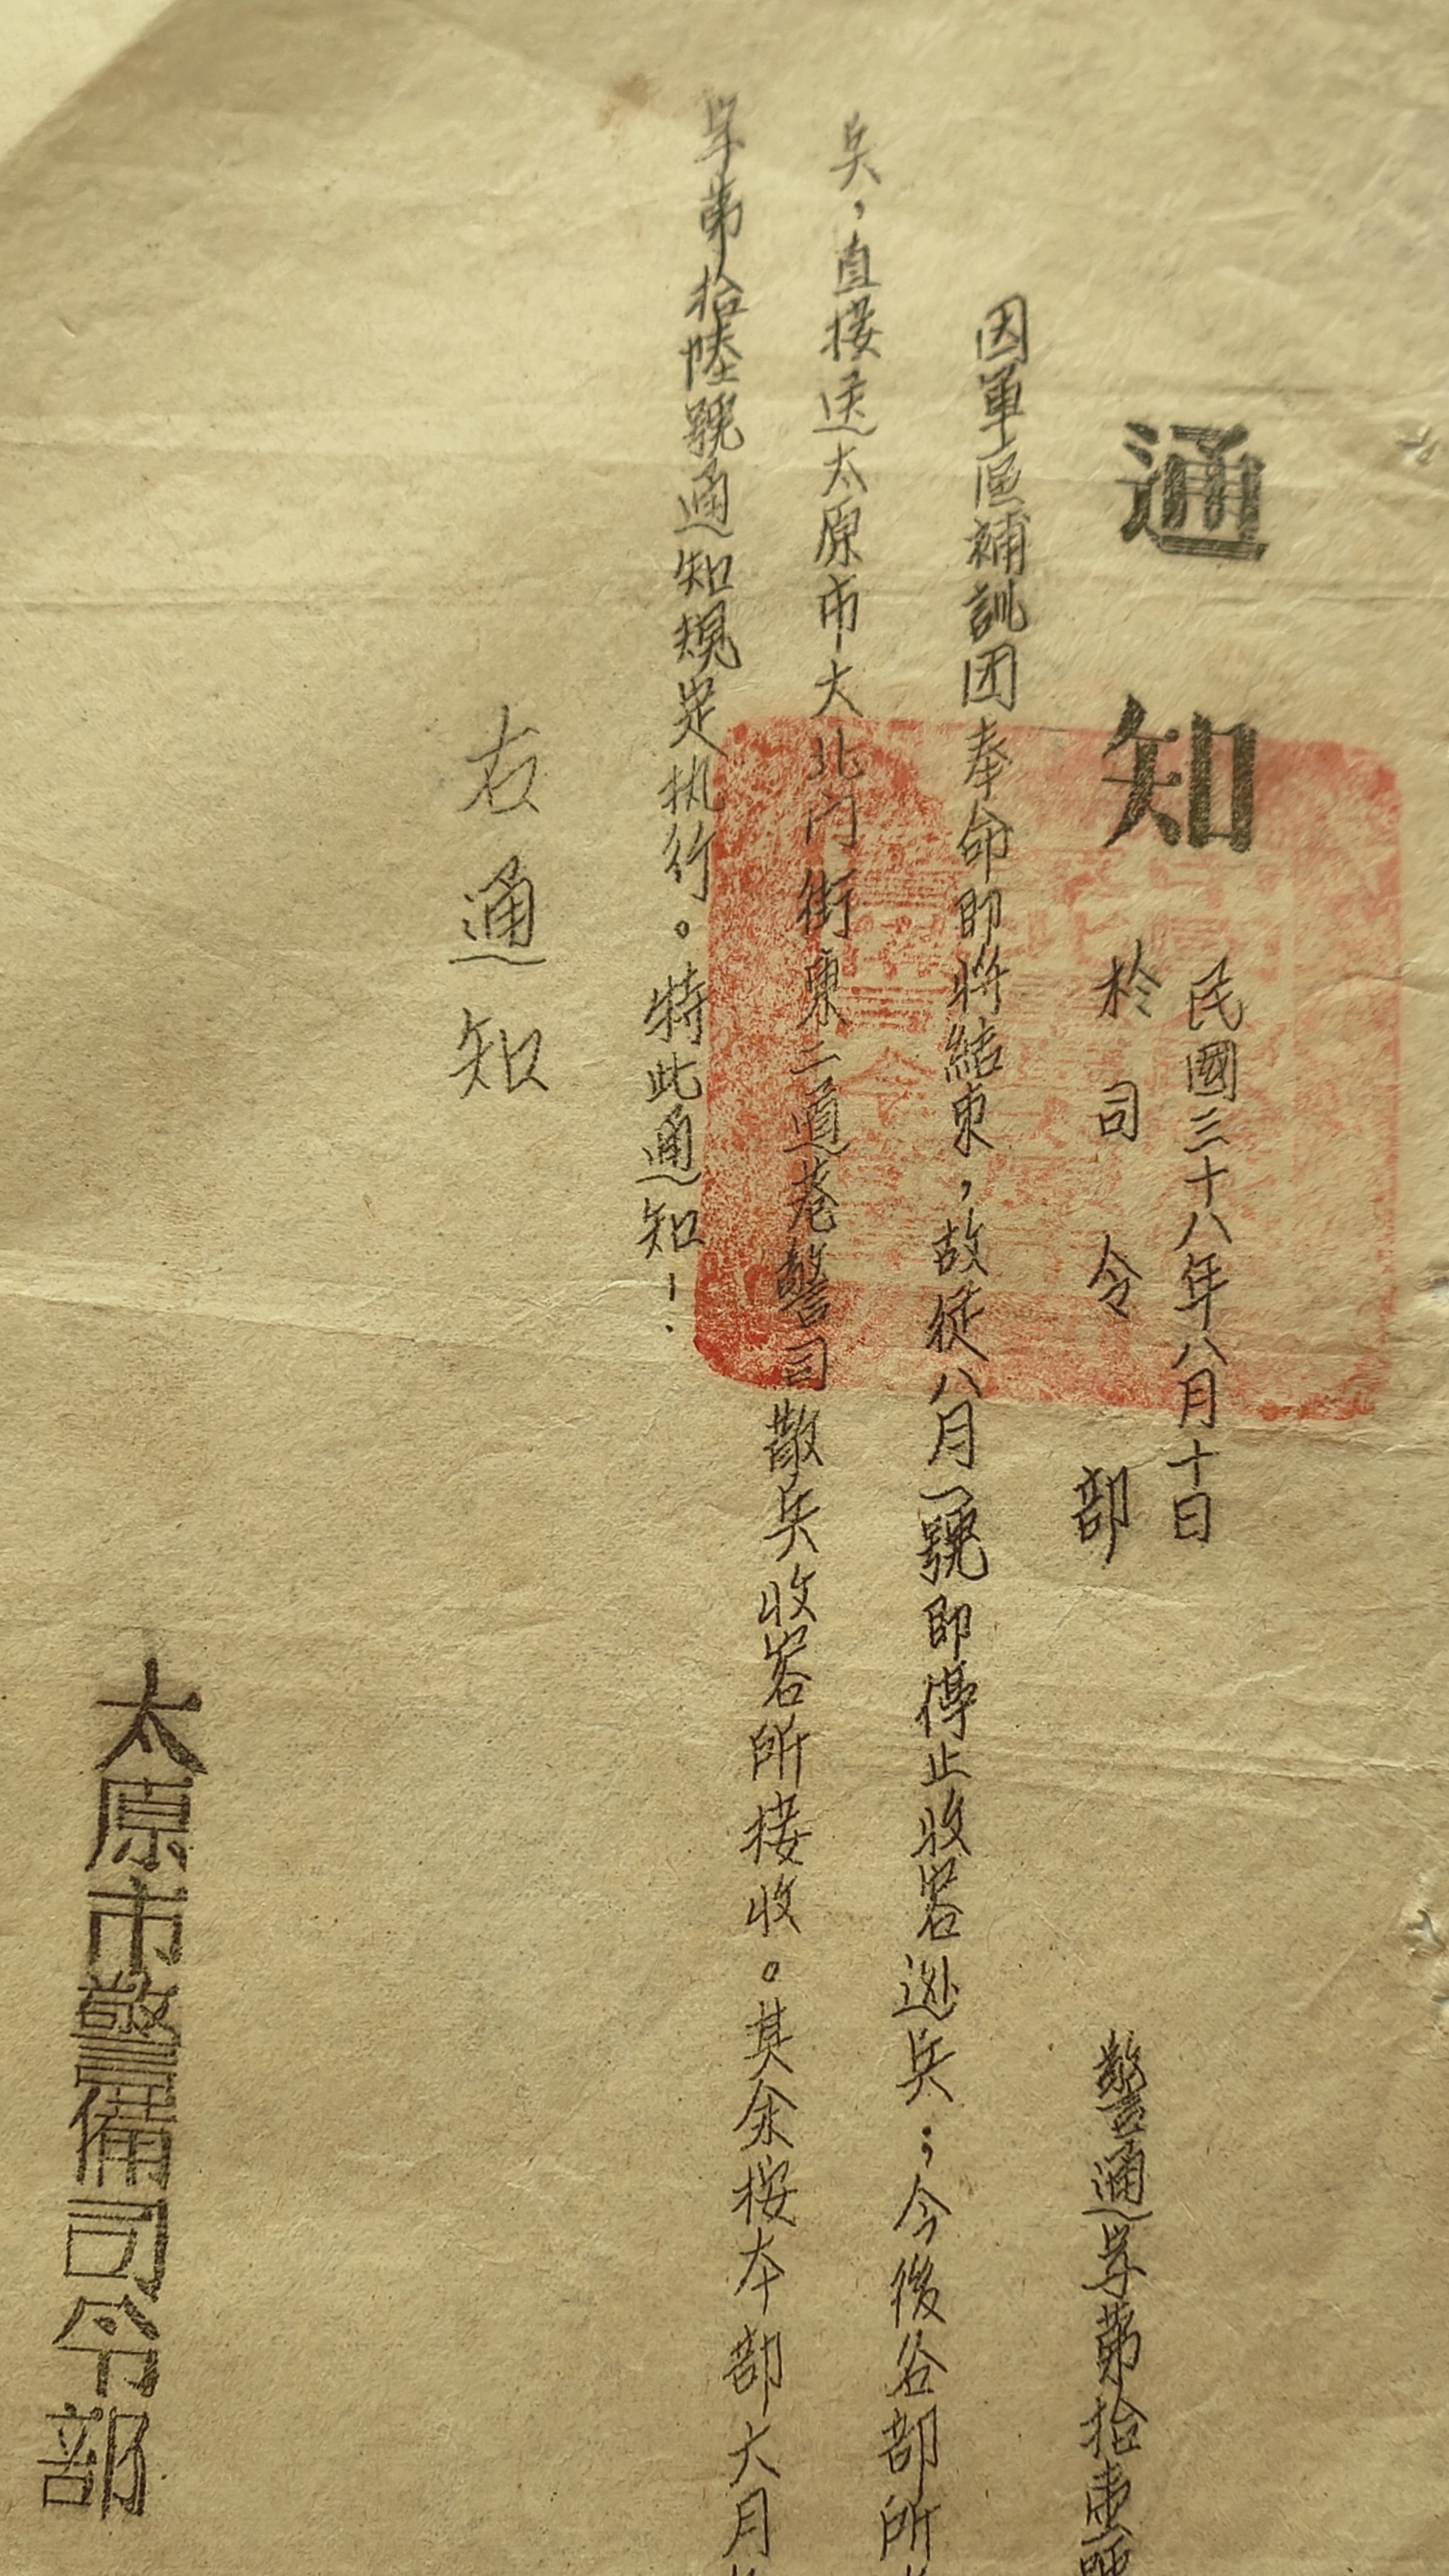 通知
民國三十八年八月十日
於司令部
警通字第拾壹號
因軍區補訓团奉命即將結束,故從八月一號即停止收容逃兵;今後各部所
兵,直接送太原市大北门街東二道巷警司散兵收容所接收。其余按本部六月
字第拾陸號通知規定执行。特此通知!
右通知
太原市警備司令部